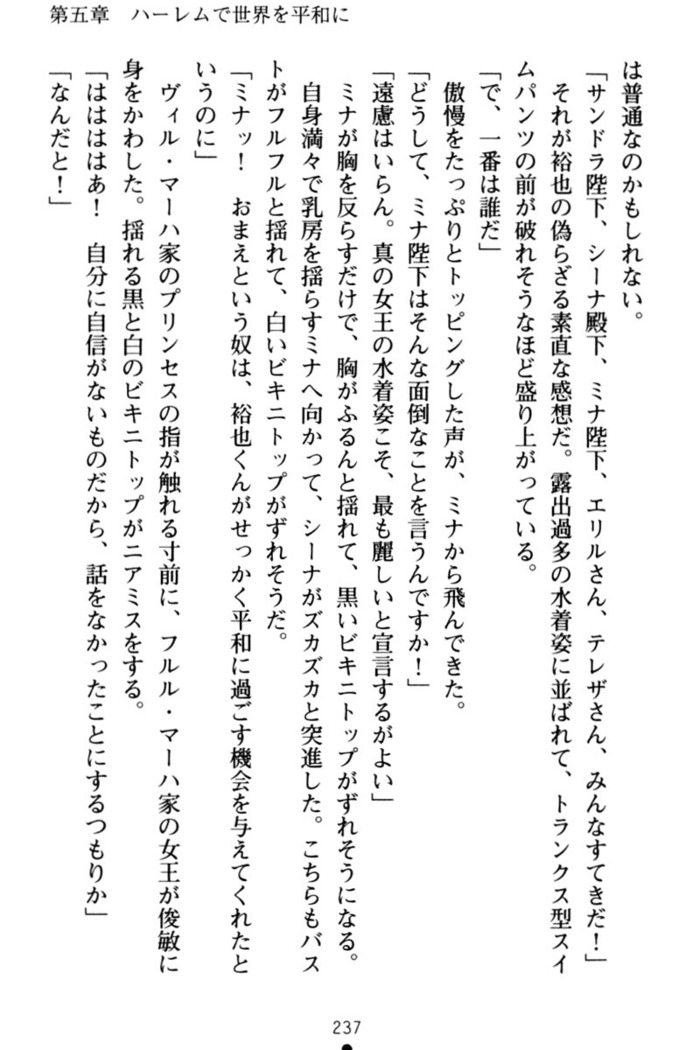 第五章　ハーレムで世界を平和に
は普通なのかもしれない。
「サンドラ陛下、シーナ殿下、ミナ陛下、エリルさん、テレザさん、みんなすてきだ！」
それが裕也の偽らざる素直な感想だ。露出過多の水着姿に並ばれて、トランクス型スイ
ムパンツの前が破れそうなほど盛り上がっている。
「で、一番は誰だ」
傲慢をたっぷりとトッピングした声が、ミナから飛んできた。
「どうして、ミナ陛下はそんな面倒なことを言うんですか！」
「遠慮はいらん。真の女王の水着姿こそ、最も麗しいと宣言するがよい」
ミナが胸を反らすだけで、胸がふるんと揺れて、黒いビキニトップがずれそうになる。
自身満々で乳房を揺らすミナへ向かって、シーナがズカズカと突進した。こちらもバス
トがフルフルと揺れて、白いビキニトップがずれそうだ。
「ミナッ！　おまえという奴は、裕也くんがせっかく平和に過ごす機会を与えてくれたと
いうのに」
ヴィル・マーハ家のプリンセスの指が触れる寸前に、フルル・マーハ家の女王が俊敏に
身をかわした。揺れる黒と白のビキニトップがニアミスをする。
「はははははあ！　自分に自信がないものだから、話をなかったことにするつもりか」
「なんだと！」
237